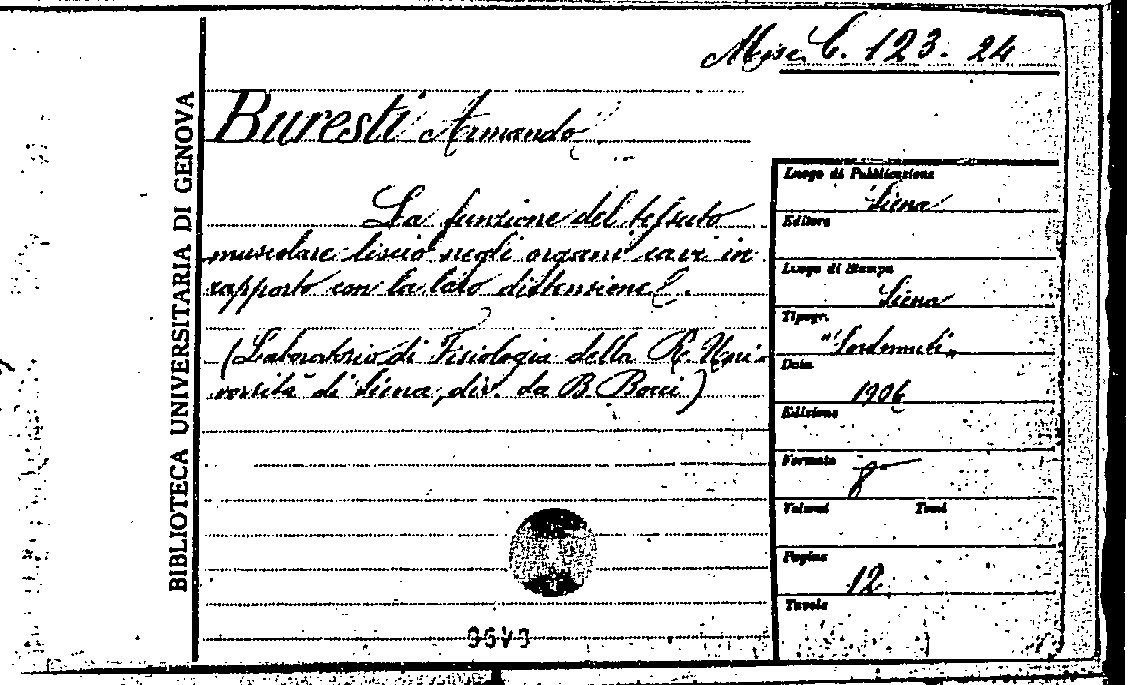 Misc. C. 123. 24
BIBLIOTECA UNIVERSITARIA DI GENOVA
Buresti Armando
La funzione del tessuto
muscolare liscio negli organi cavi in
rapporto con la loro distensione.
(Laboratorio di Fisiologia della R. Uni-
versità di Siena, dir. da B. Bocci)
Luogo di Pubblicazione
Siena
Editore
Luogo di Stampa
Siena
Tipogr.
Data
1906
Edizione
Formato
8
Volumi Tomi
Pagine
12
Tavole